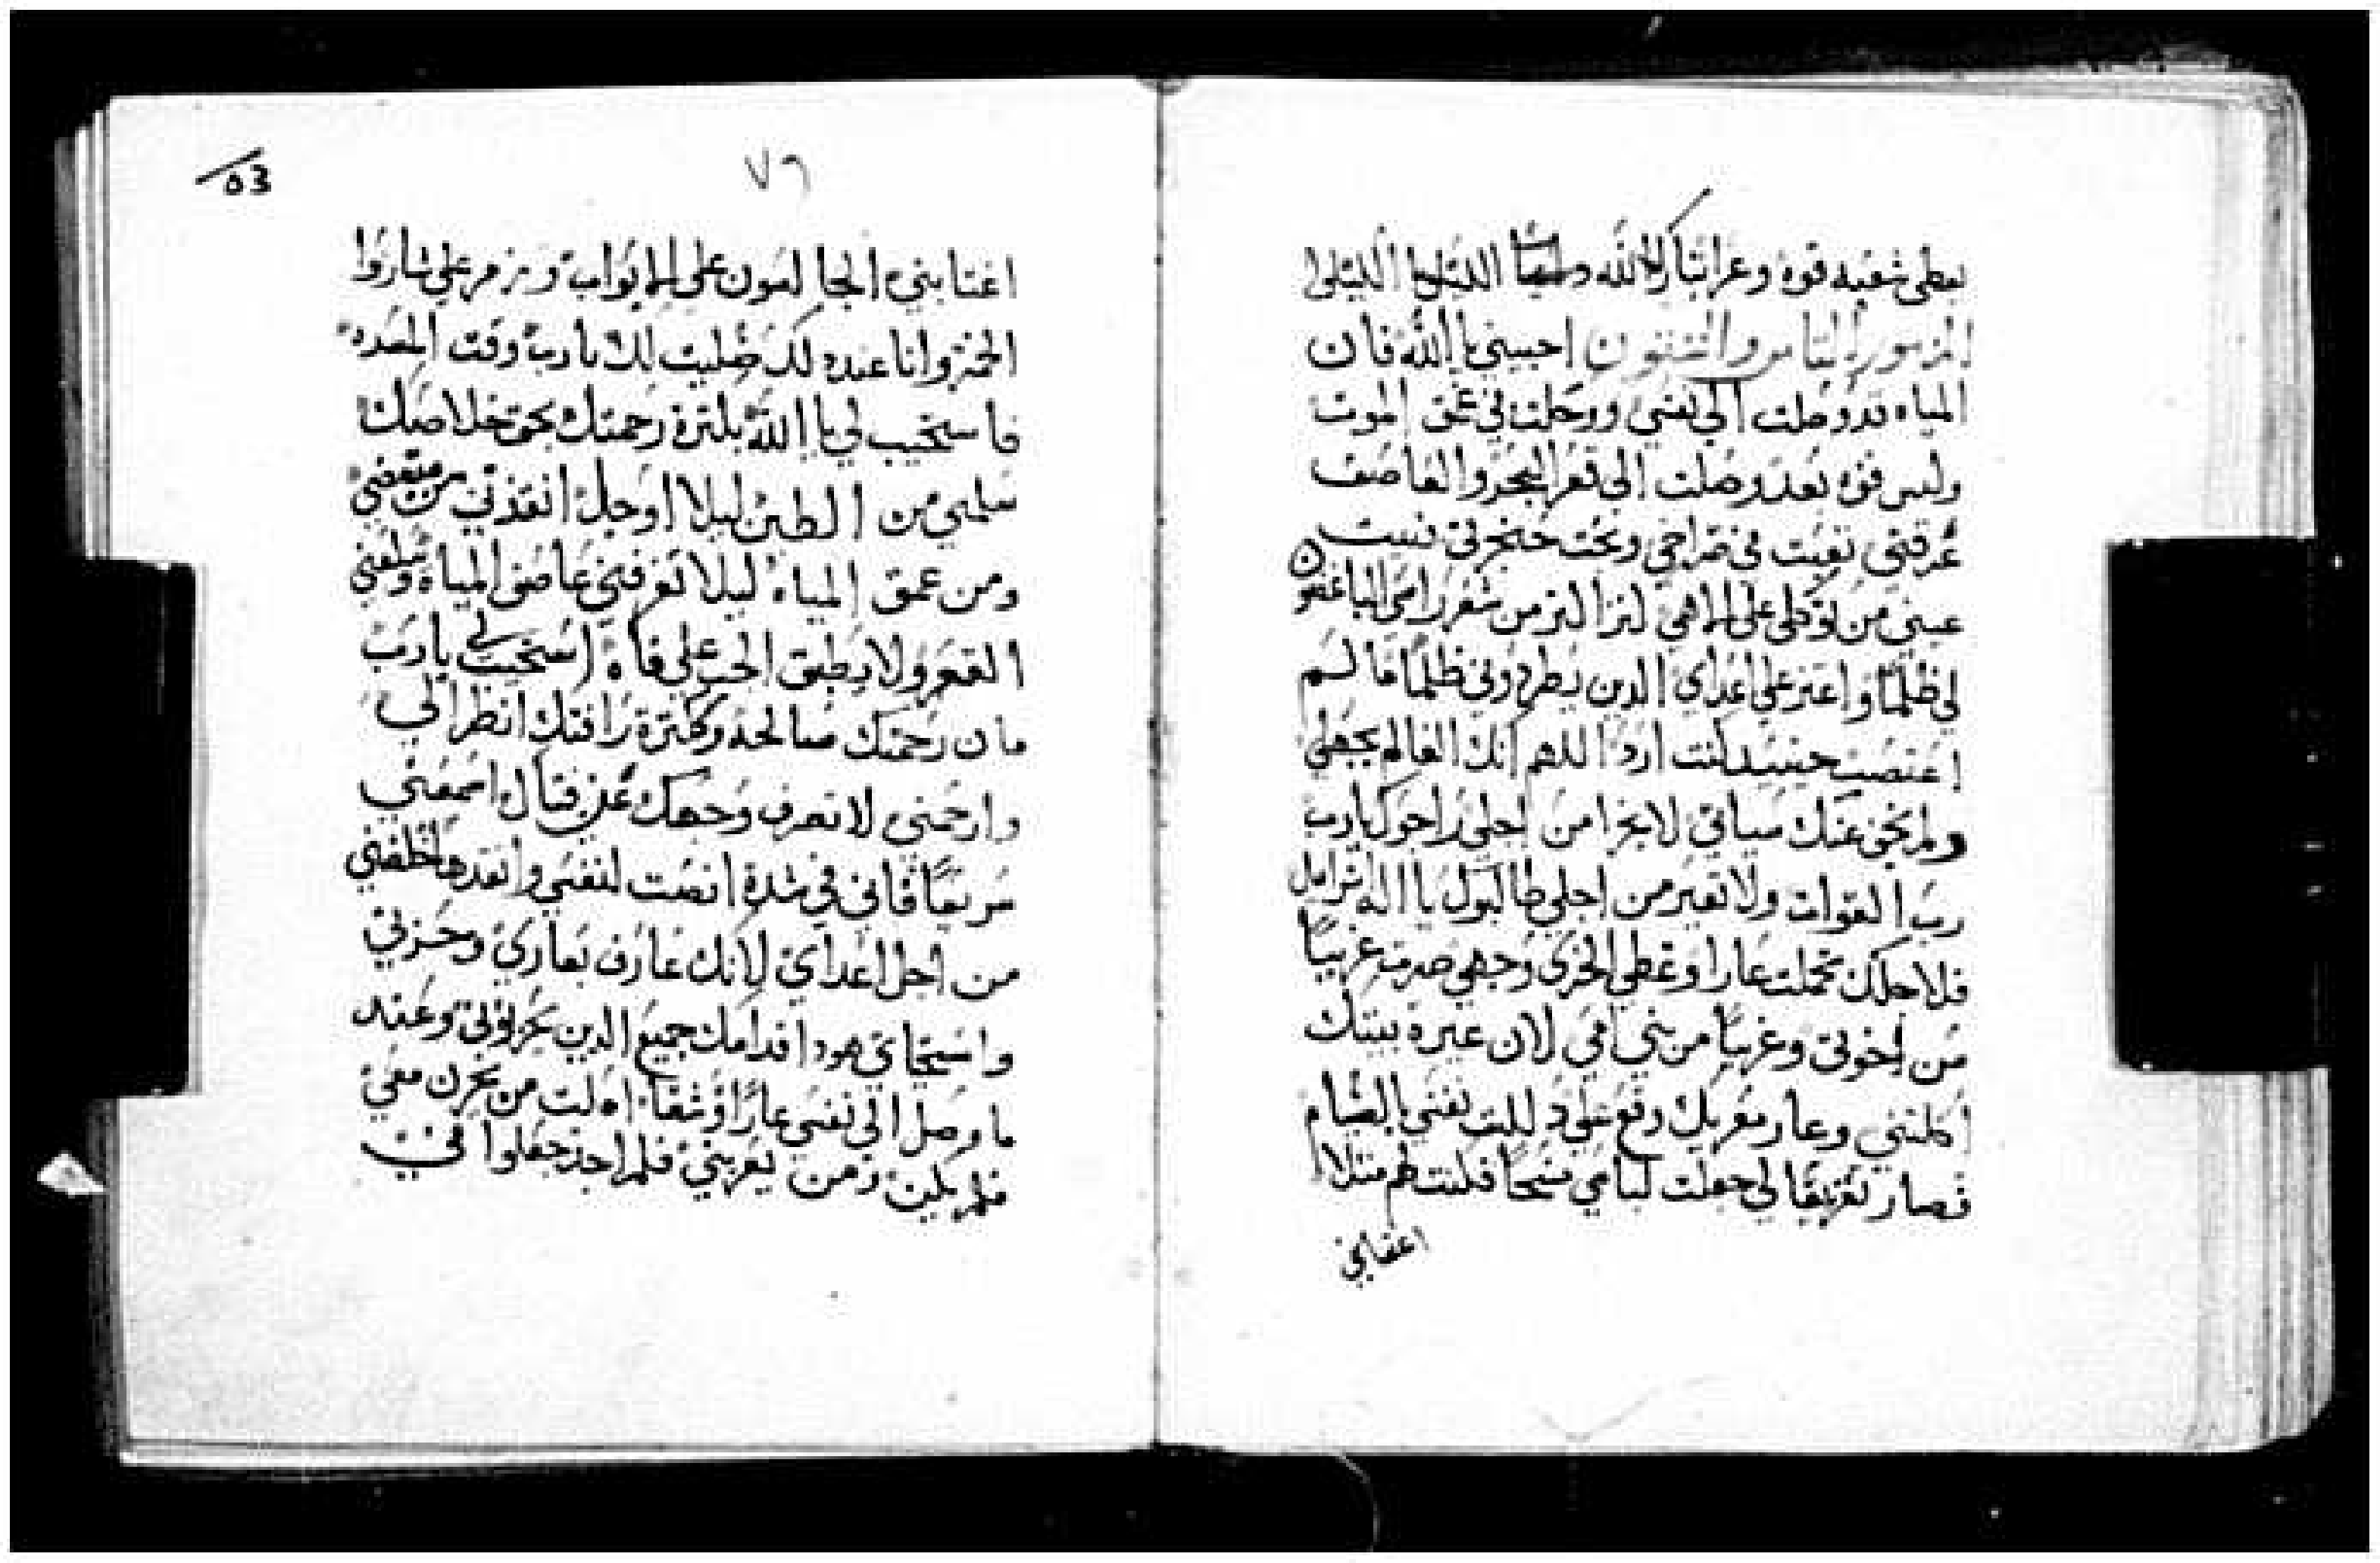 يعطى شعبه قوة وعزا تبارك الله
المزمور الثامن والستون احييني يا الله فان
المياه قد وصلت الى نفسي ووحلت في عمق الموت
وليس قوة بعد وصلت الى قعر البحر والعاصف
غرقتني تعبت في صراخي وبحت حنجرتي فنيت
عيني من توكلى على الاهي كثرا اكثر من شعر راسى الباغضون
لي ظلمًا واعتز علي اعداي الدين يطردوني ظلمًا مالم
اغتصب حينيد كنت ارد اللهم انك العالم بجهلي
ولم تخفى عنك سياتي لا يخزا من اجلي راجوك يارب
رب القوات ولا تعير من اجلي طالبوك يا اله اسرايل
فلاجلك تحملت عارا وغطي الخزى وجهي صرت غريبًا
من اخوتي وغريبًا من بني امي لان غيرة بيتك
اكلتني وعار معيريك وقع على بللت نفسي بالصيام
فصار تعزيقًا لي جعلت لباسي مسحًا فكنت لهم مثلا
اغتابني
٧٦
53
اغتابني الجالسون على الابواب وزمر على شاربوا
الخمر وانا عند ذلك صليت لك يارب وقت المسره
فاستجيب لي يا الله بكثرة رحمتك بحق خلاصك
سلمني من الطين ليلا اوحل انقذني من مبغضي
ومن عمق المياه ليلا تغرقني عاصف المياه وتبلعني
القعر ولا يطبق الجب علي فاه استجيب لي يارب
فان رحمتك صالحة وكثرة رافتك انظر الي
وارحمني لا تصرف وجهك عن فتاك اسمعني
سريعًا فاني في شدة انصت لنفسي وانقدها خلصني
من اجل اعداي لانك عارف بعاري وحزني
واستحياتي هودا قدامك جميع الدين يحزنوني وعنده
ما وصل الى نفسي عارًا وشقا املت من يحزن معي
فلم يكن ومن يعزيني فلم اجد جعلوا في